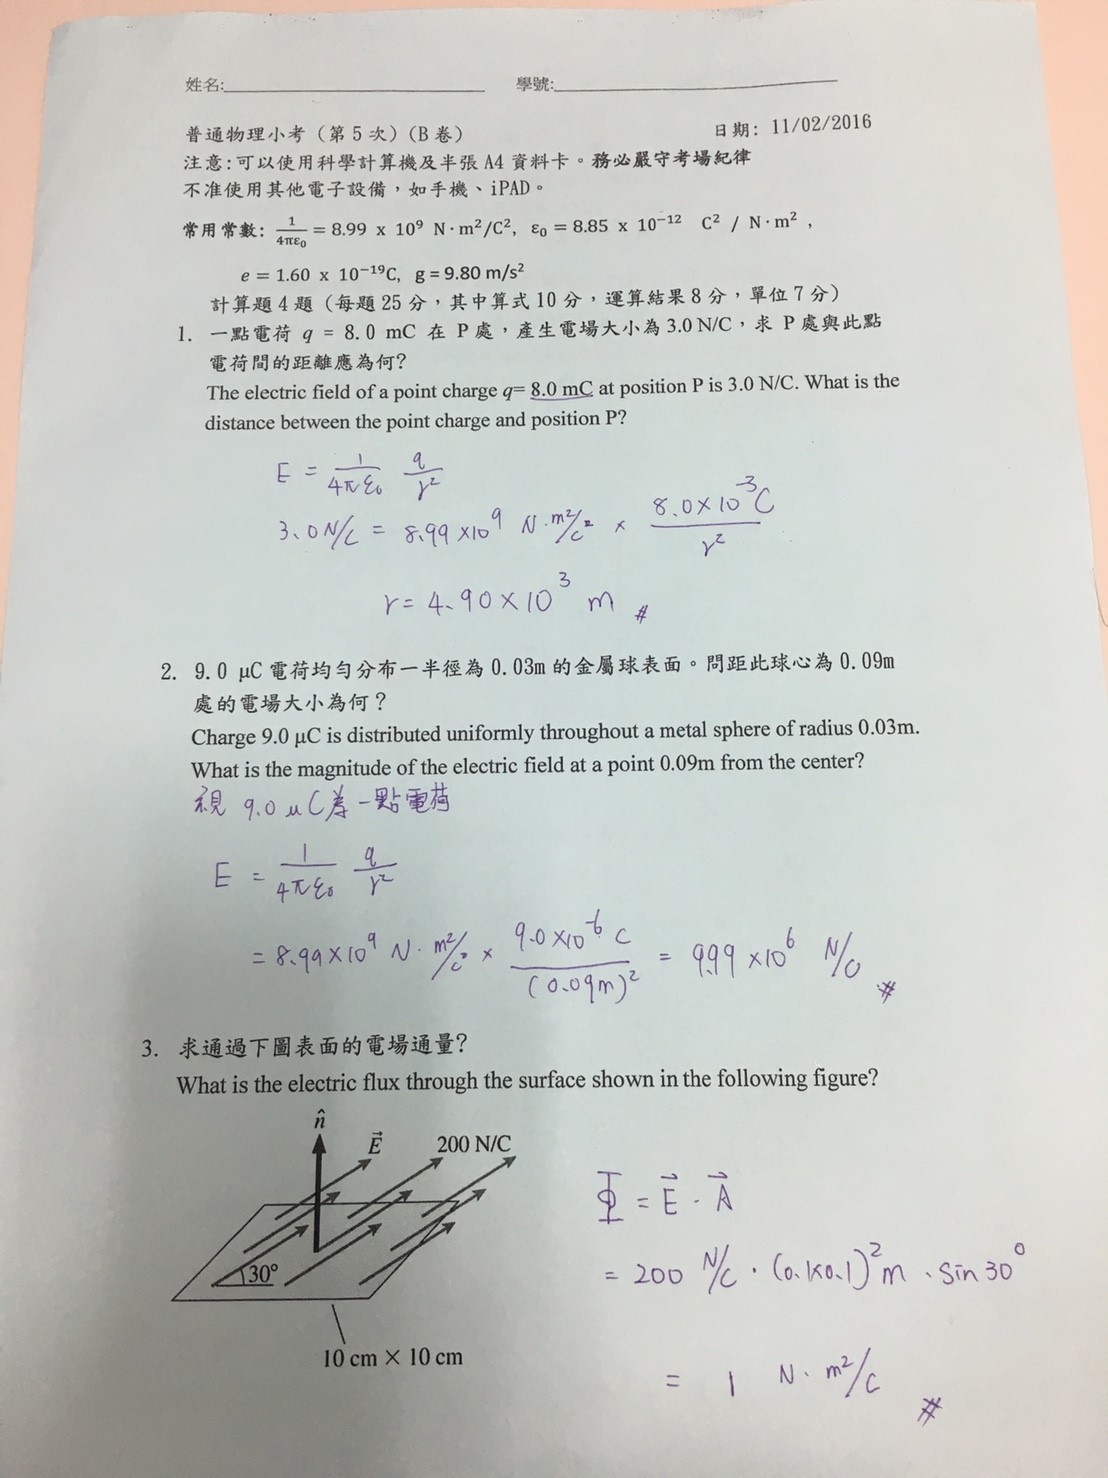 姓名:________ 學號:________
普通物理小考（第 5 次）(B 卷) 日期: 11/02/2016
注意:可以使用科學計算機及半張 A4 資料卡。務必嚴守考場紀律
不准使用其他電子設備，如手機、iPAD。
常用常數: 1/4πε₀ = 8.99 x 10⁹ N·m²/C², ε₀ = 8.85 x 10⁻¹² C² / N·m² ,
e = 1.60 x 10⁻¹⁹C, g = 9.80 m/s²
計算題 4 題（每題 25 分，其中算式 10 分，運算結果 8 分，單位 7 分）
1. 一點電荷 q = 8.0 mC 在 P 處，產生電場大小為 3.0 N/C，求 P 處與此點
電荷間的距離應為何?
The electric field of a point charge q= 8.0 mC at position P is 3.0 N/C. What is the
distance between the point charge and position P?
E = 1/4πε₀ q/r²
3.0 N/C = 8.99 ×10⁹ N·m²/C² × 8.0×10⁻³C/r²
r = 4.90×10³ m #
2. 9.0 μC 電荷均勻分布一半徑為 0.03m 的金屬球表面。問距此球心為 0.09m
處的電場大小為何？
Charge 9.0 μC is distributed uniformly throughout a metal sphere of radius 0.03m.
What is the magnitude of the electric field at a point 0.09m from the center?
視 9.0 μC 為一點電荷
E = 1/4πε₀ q/r²
= 8.99×10⁹ N·m²/C² × 9.0×10⁻⁶ C/(0.09m)² = 9.99 ×10⁶ N/C #
3. 求通過下圖表面的電場通量?
What is the electric flux through the surface shown in the following figure?
n̂
E⃗ 200 N/C
30°
10 cm × 10 cm
Φ = E⃗ · A⃗
= 200 N/C · (0.1×0.1)²m · sin30°
= 1 N·m²/C #